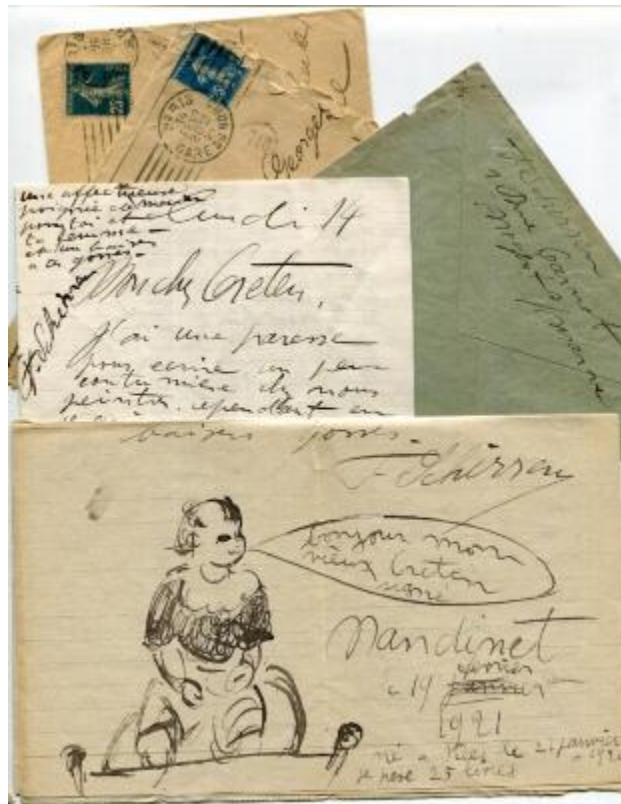 PARIS
GARE
25
Georges
une affectueuse
poignée de main
pour toi et
ta femme —
et un baiser
a tes gosses —
F. Schirren
lundi 14
Mon cher Creten,
J'ai une paresse
pour ecrire un peu
coutumière de nous
peintres. cependant en
F. Schirren
rue Carnot
baisers gosses.
F. Schirren
bonjour mon
vieux Creten
Nandinet
a 14
1921
né a le 21 janvier
je pese 25 livres